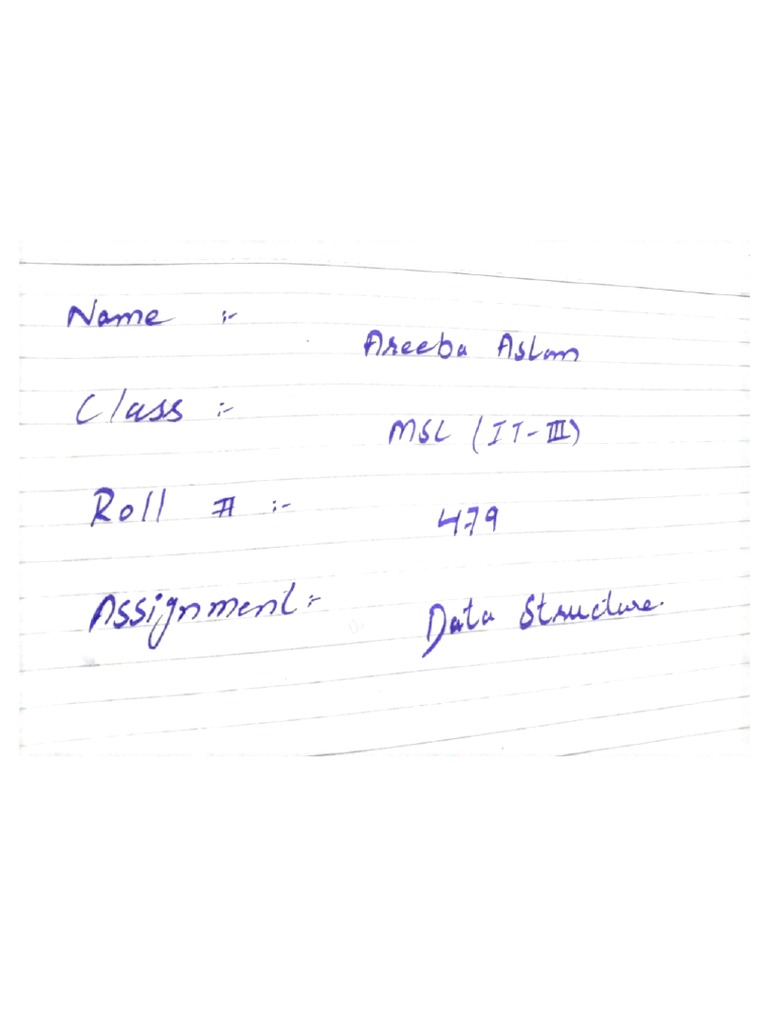 Name :-
Areeba Aslam
Class :-
MSC (IT-III)
Roll # :-
479
Assignment:-
Data Structure.